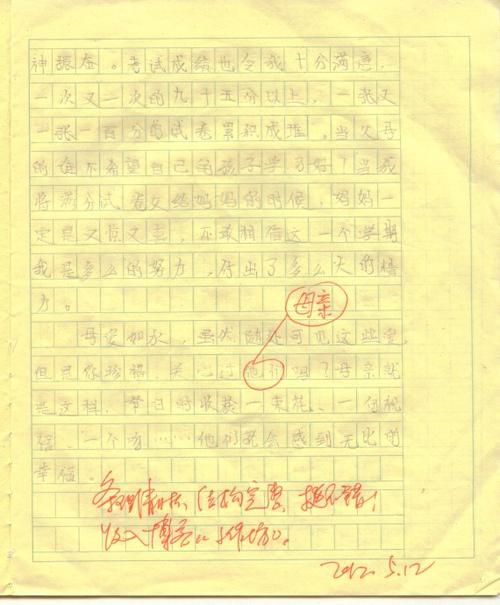 神振奋。考试成绩也令我十分满意,
一次又一次的九十五分以上,一张又
一张一百分的试卷累积成堆。当父母
的谁不希望自己的孩子学习好?当我
将满分试卷交给妈妈的时候,妈妈一
定是又惊又喜,不敢相信这一个学期
我是多么的努力,付出了多么大的精
力。
母亲
母爱如水,虽然随处可见这些字,
但是你珍惜、关心过他们吗?母亲就
是这样,节日时收获一束花、一句祝
福、一个 ……他们就会感到无比的
幸福。
条理清晰、结构完整,挺不错!
收入博客
2012.5.12